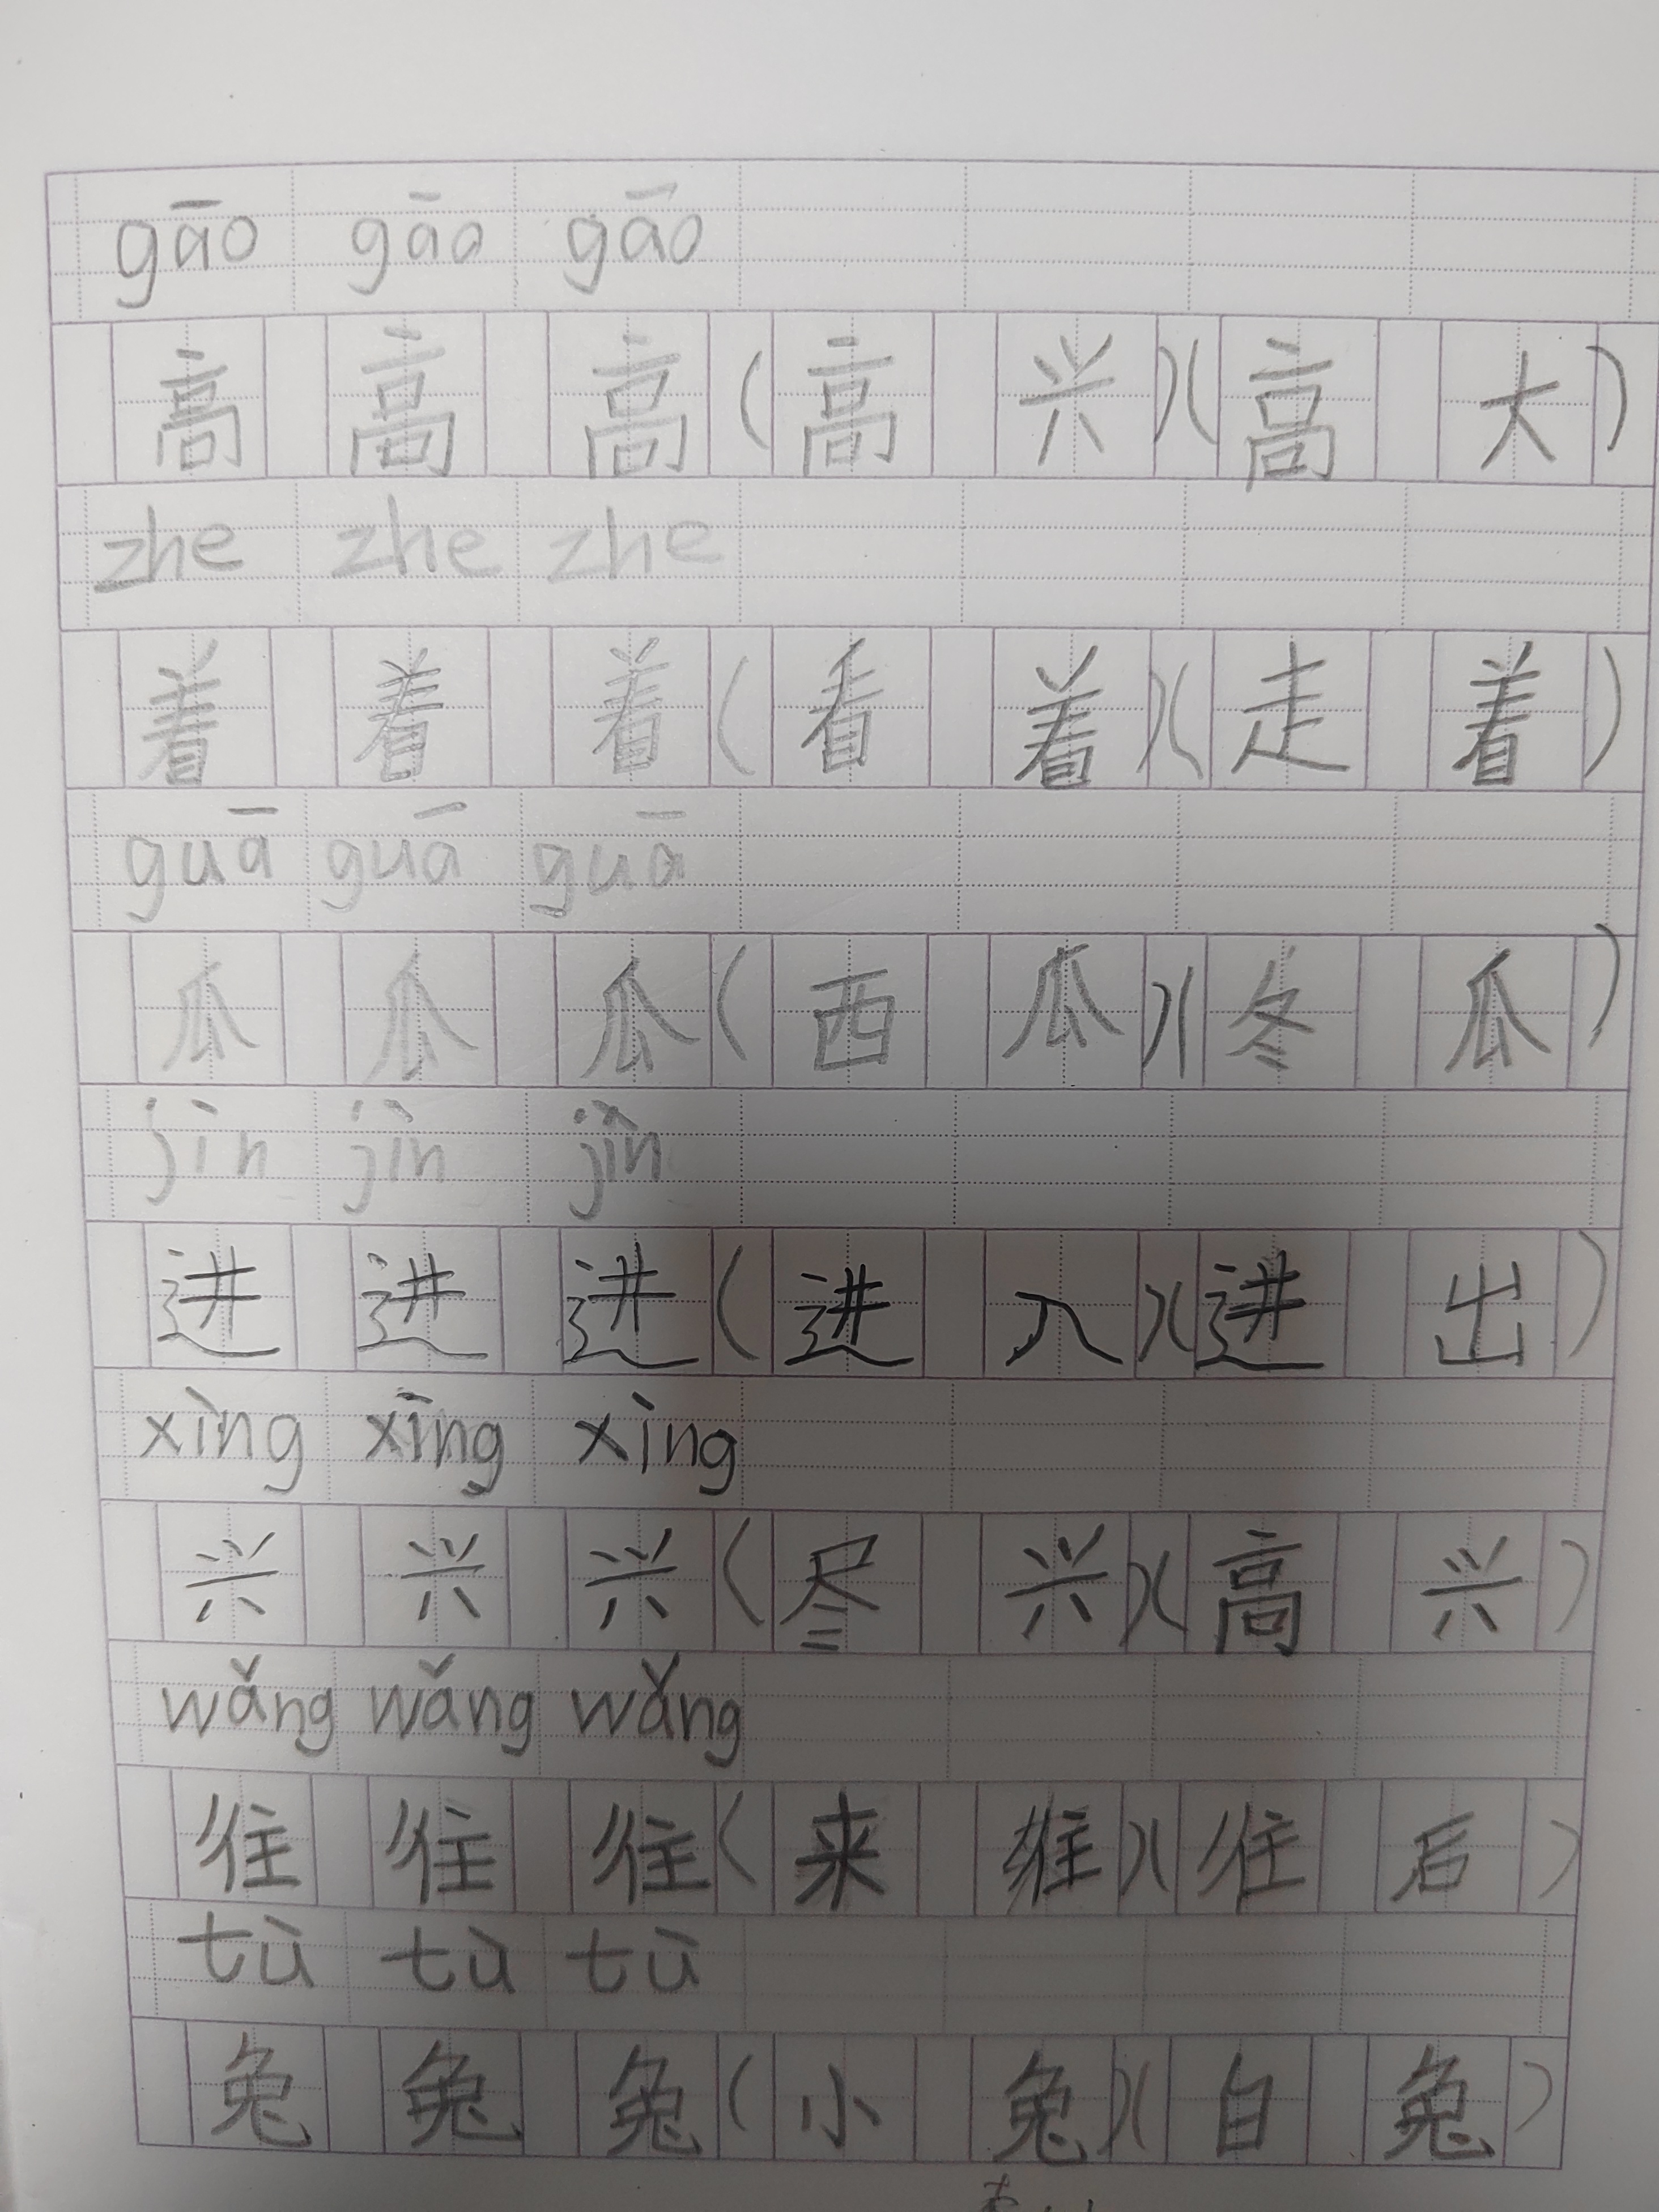 gāo gāo gāo
高 高 高 (高 兴)(高 大)
zhe zhe zhe
着 着 着 (看 着)(走 着)
guā guā guā
瓜 瓜 瓜 (西 瓜)(冬 瓜)
jìn jìn jìn
进 进 进 (进 入)(进 出)
xìng xìng xìng
兴 兴 兴 (尽 兴)(高 兴)
wǎng wǎng wǎng
往 往 往 (来 往)(往 后)
tù tù tù
兔 兔 兔 (小 兔)(白 兔)